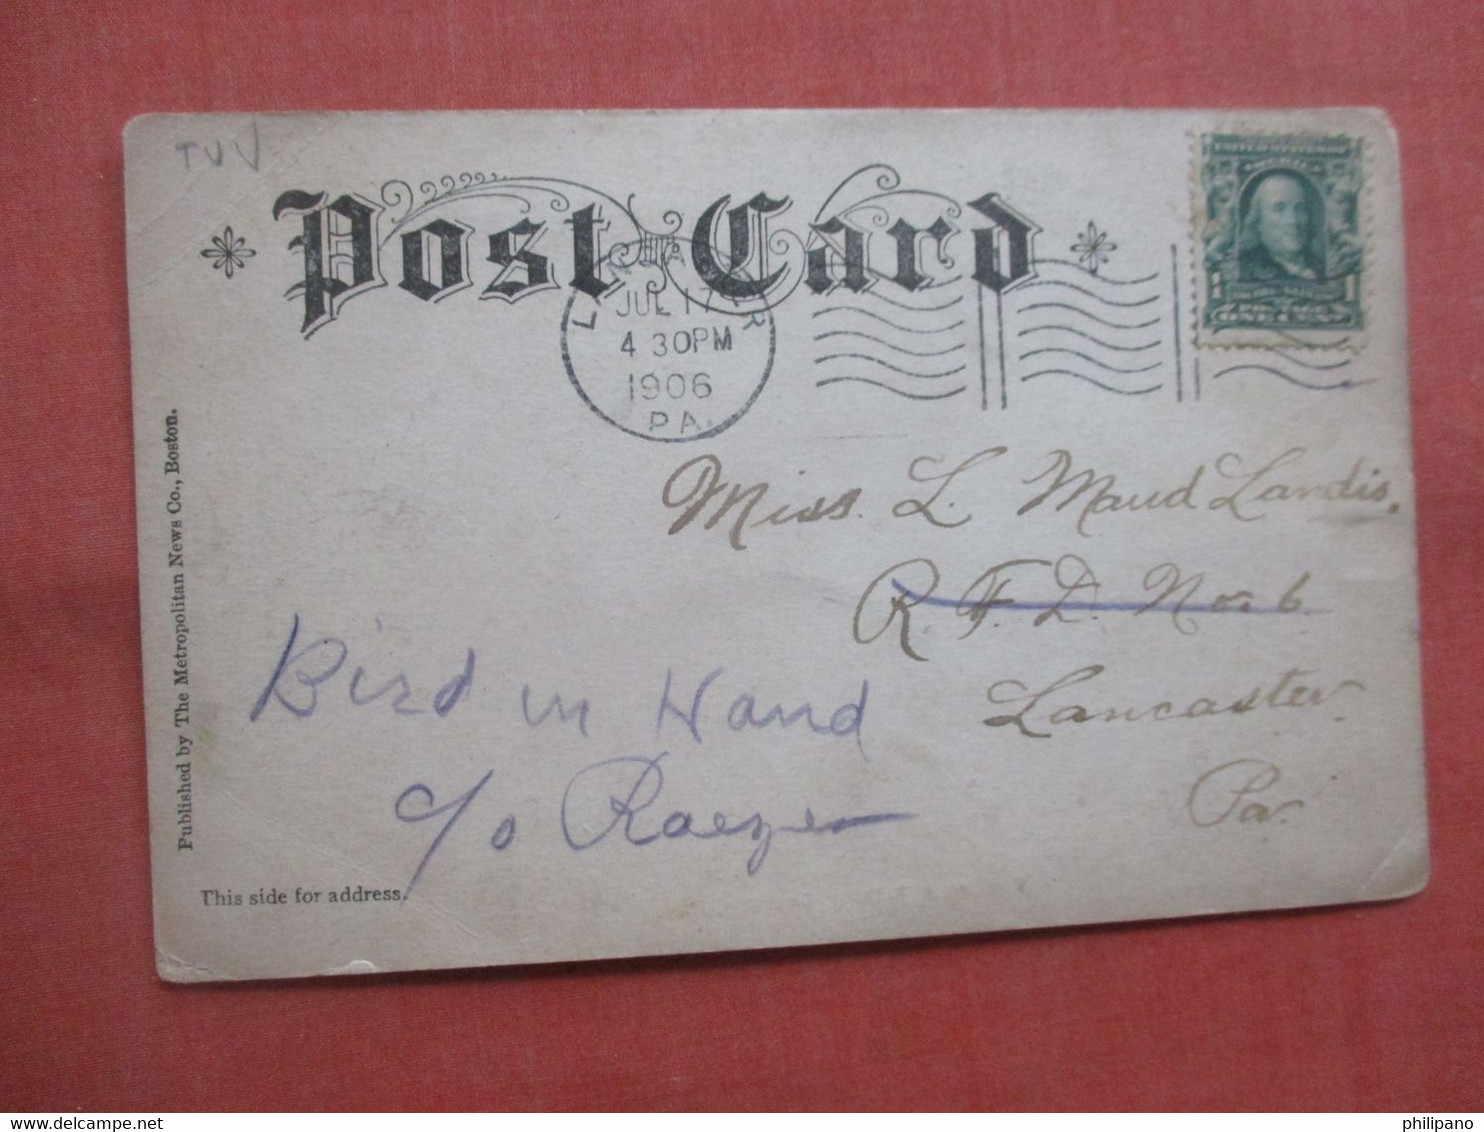 TUV
Post Card
LANCASTER
JUL 17
4 30PM
1906
PA.
UNITED STATES OF AMERICA
1 1
ONE CENT
Miss. L. Maud Landis.
R. F. D. No. 6
Lancaster
Pa.
Bird in Hand
c/o Raezer
Published by The Metropolitan News Co., Boston.
This side for address.
www.delcampe.net
philipano